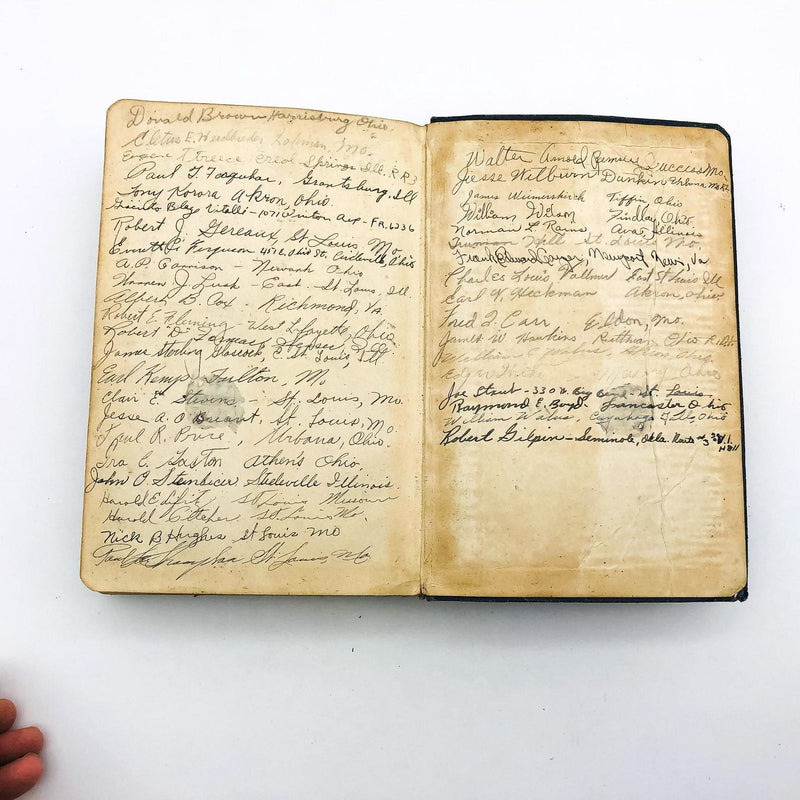 Donald Brown Harrisburg Ohio
Cletus E. Mo.
Eugene Treece Creal Springs Ill. R R 3
Paul T Farquher, Grantsburg, Ill
Tony Korora Akron, Ohio
Blaze Vitelli - 1071 Winton Ave - FR. 6336
Robert J. Gereaux, St Louis, Mo.
Emmett R. Ferguson 457 E. Ohio St., Circleville, Ohio
A. P. Garrison - Newark Ohio
Warren J Lush - East - St Louis, Ill.
Albert B. Cox - Richmond, Va
Robert E. Fleming - West Lafayette, Ohio
Robert D. Ill.
James Sterling Glascock, E. St Louis, Ill.
Earl Kemp Fulton, Mo
Clair E Stevens - St. Louis, Mo.
Jesse A. O Bryant, St. Louis, Mo.
Paul R. Powe, Urbana, Ohio.
Ira C. Gaston Athens Ohio.
John O. Stenbicer Steeleville Illinois.
Harold E St Louis Missouri
Harold St. Louis Mo.
Nick B Hughes St Louis Mo
Paul St Louis, Mo
Walter Arnold Success Mo.
Jesse Wilburn Dunkin Urbana Mo R2
James Weimerskirch Tiffin, Ohio
William Wilson Findlay, Ohio
Norman L. Rains Ava, Illinois
Truman Hill St. Louis Mo.
Frank Edward Newport News, Va
Charles Louis Vollmer East St Louis Ill
Carl W. Heckman Akron, Ohio
Fred T. Carr Eldon, Mo.
James W. Hawkins, Rittman Ohio
William Ohio
Ohio
Joe Stout - 330 St. Louis
Raymond E. Boyd Lancaster Ohio
William Cuyahoga Falls, Ohio
Robert Gilpin - Seminole, Okla. Route 3